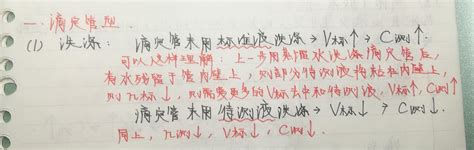 一. 滴定管型.
(1) 洗涤: 滴定管未用标准液洗涤 → V标↑ → C测↑.
可以这样理解: 上一步用蒸馏水洗涤滴定管后,
有水残留于管内壁上, 则部分待测液将粘粘内壁上,
则 n标↓, 则需要更多的V标去中和待测液, V标↑, C测↑
滴定管未用待测液洗涤 → V标↓ → C测↓.
同上, n测↓, V标↓, C测↓.